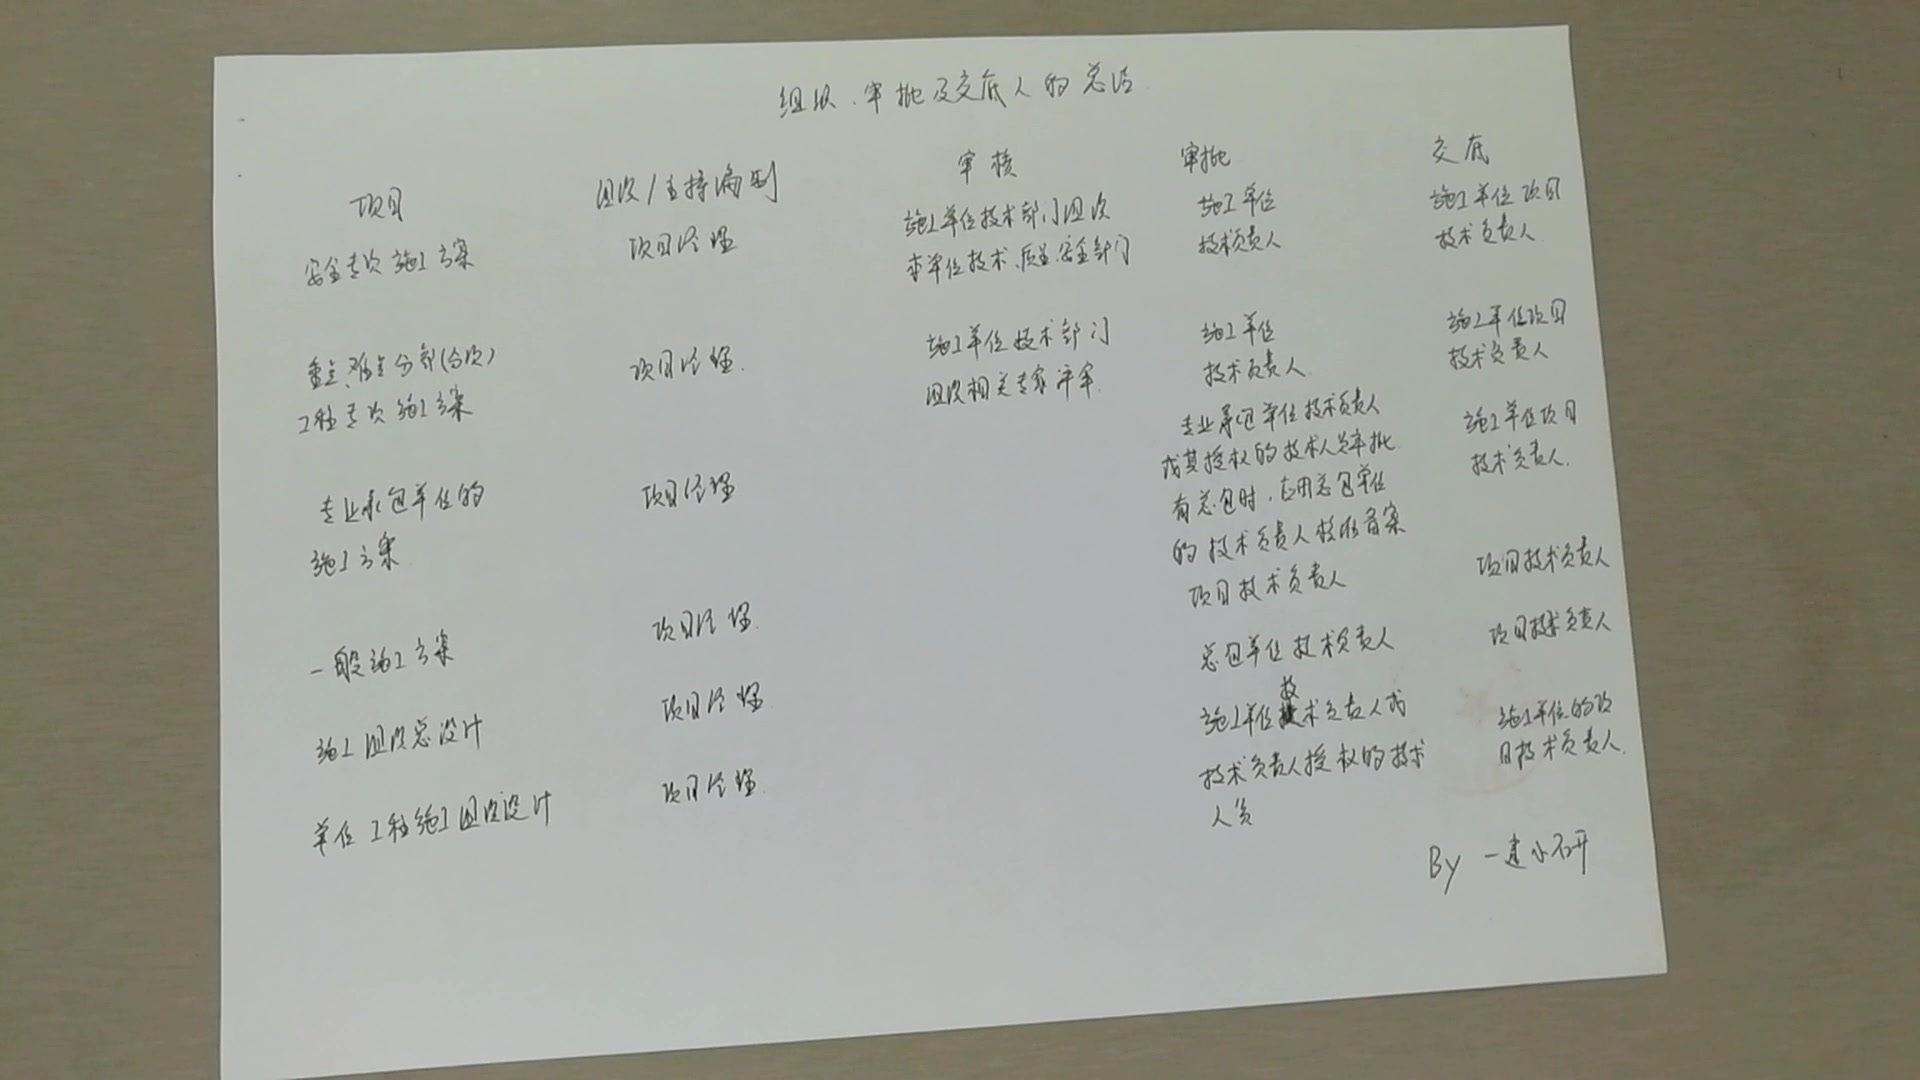 组织、审批及交底人的总结
项目
组织/主持编制
审核
审批
交底
安全专项施工方案
项目经理
施工单位技术部门组织
本单位技术、质量、安全部门
施工单位
技术负责人
施工单位项目
技术负责人
重点、难点分部(分项)
工程专项施工方案
项目经理
施工单位技术部门
组织相关专家评审
施工单位
技术负责人
施工单位项目
技术负责人
专业承包单位的
施工方案
项目经理
专业承包单位技术负责人
或其授权的技术人员审批
有总包时,应由总包单位
的技术负责人核准备案
施工单位项目
技术负责人
一般施工方案
项目经理
项目技术负责人
项目技术负责人
施工组织总设计
项目经理
总包单位技术负责人
项目技术负责人
单位工程施工组织设计
项目经理
施工单位技术负责人或
技术负责人授权的技术
人员
施工单位的项
目技术负责人
By 一建小研